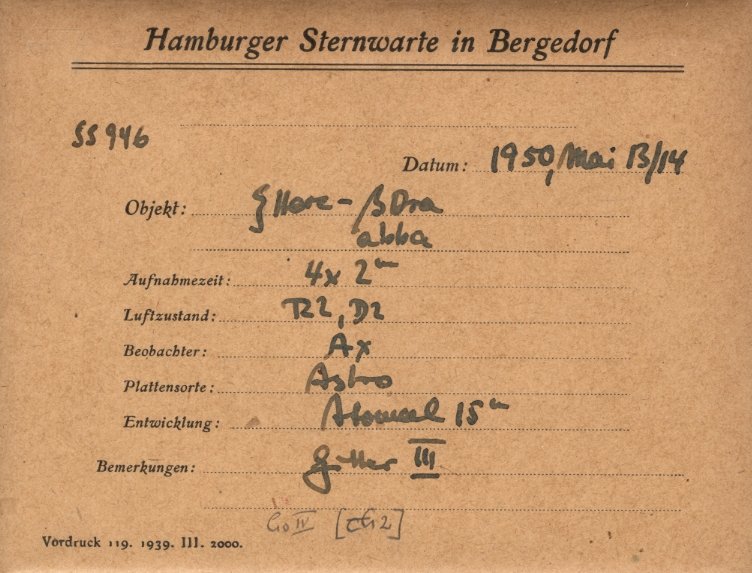 Hamburger Sternwarte in Bergedorf
SS 946
Datum: 1950, Mai 13/14
Objekt: ξ Herc - β Dra
abba
Aufnahmezeit: 4x 2ᵐ
Luftzustand: R2, D2
Beobachter: Ax
Plattensorte: Astro
Entwicklung: Atomal 15ᵐ
Bemerkungen: Gitter III
Vordruck 119. 1939. III. 2000.